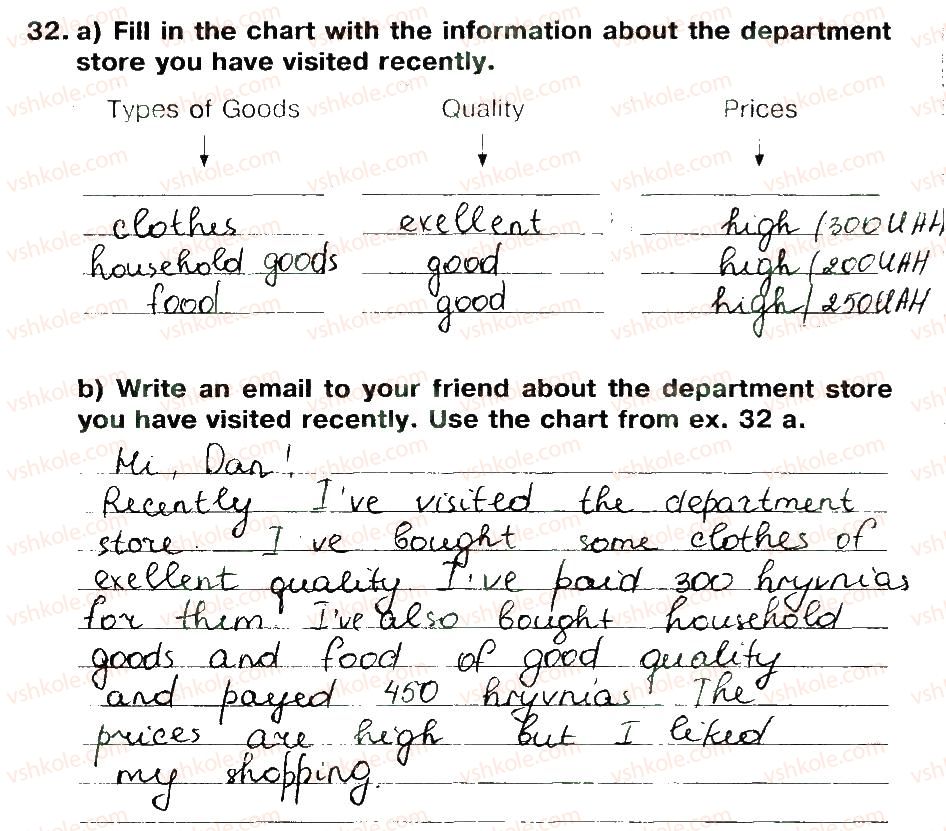 32. a) Fill in the chart with the information about the department
store you have visited recently.
Types of Goods Quality Prices
clothes exellent high / 300 UAH
household goods good high / 200 UAH
food good high / 250 UAH
b) Write an email to your friend about the department store
you have visited recently. Use the chart from ex. 32 a.
Hi, Dan!
Recently I've visited the department
store. I've bought some clothes of
exellent quality. I've paid 300 hryvnias
for them. I've also bought household
goods and food of good quality
and payed 450 hryvnias. The
prices are high but I liked
my shopping.
vshkole.com